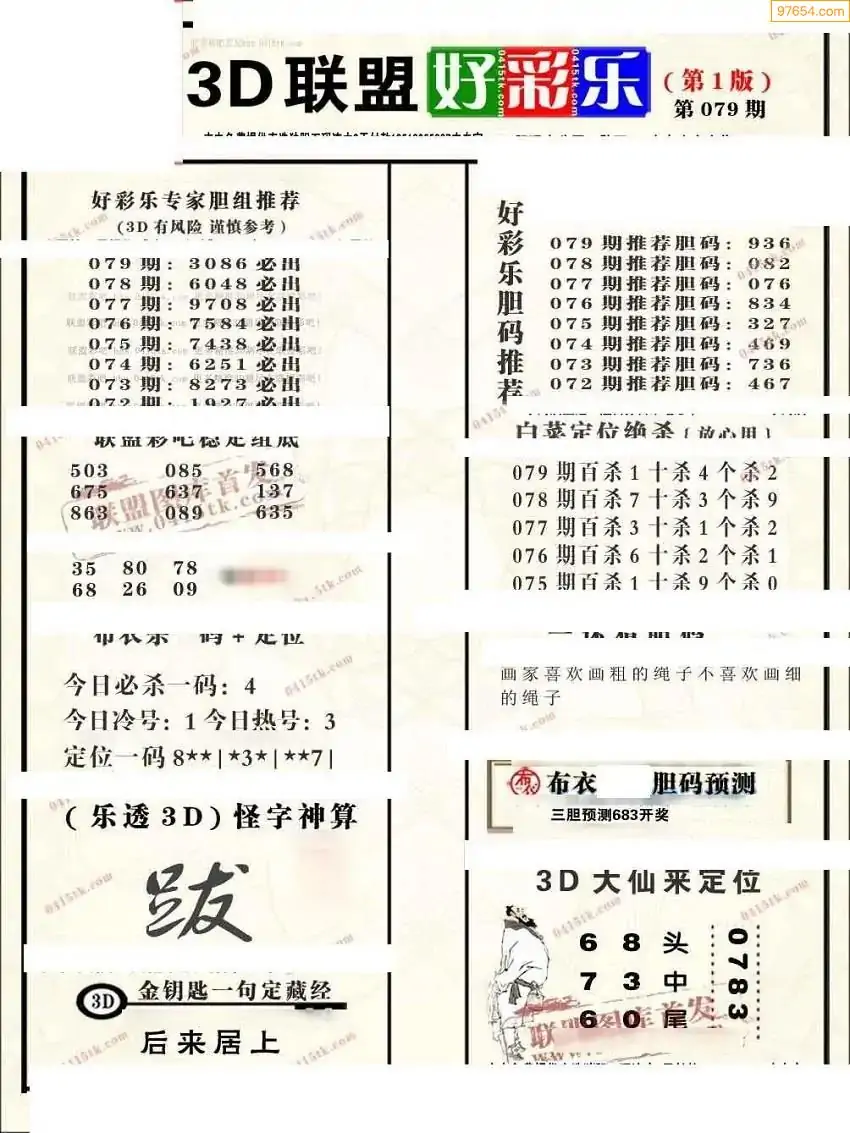 97654.com
3D联盟好彩乐
(第1版)
第079期
好彩乐专家胆组推荐
(3D有风险 谨慎参考)
079期:3086必出
078期:6048必出
077期:9708必出
076期:7584必出
075期:7438必出
074期:6251必出
073期:8273必出
072期:1927必出
联盟彩吧稳定组底
503 085 568
675 637 137
863 089 635
联盟图库首发
www.0415tk.com
35 80 78
68 26 09
今日必杀一码:4
今日冷号:1 今日热号:3
定位一码8**|*3*|**7|
(乐透3D)怪字神算
跋
3D 金钥匙一句定藏经
后来居上
好彩乐胆码推荐
079期推荐胆码:936
078期推荐胆码:082
077期推荐胆码:076
076期推荐胆码:834
075期推荐胆码:327
074期推荐胆码:469
073期推荐胆码:736
072期推荐胆码:467
白菜定位绝杀(放心用)
079期百杀1十杀4个杀2
078期百杀7十杀3个杀9
077期百杀3十杀1个杀2
076期百杀6十杀2个杀1
075期百杀1十杀9个杀0
画家喜欢画粗的绳子不喜欢画细
的绳子
布衣 胆码预测
三胆预测683开奖
3D大仙来定位
6 8 头
7 3 中
6 0 尾
0783
联盟图库首发